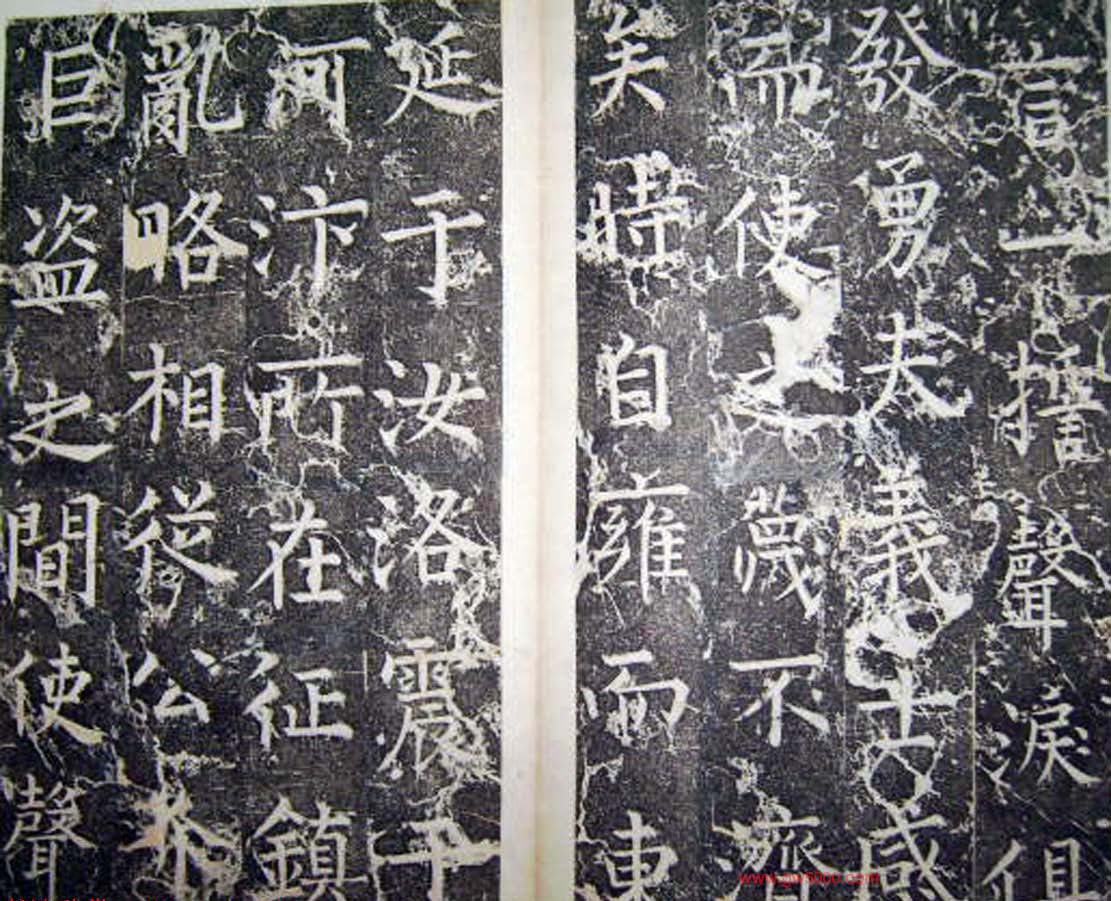 言一聲淚俱
發勇夫義士咸
而使之蔑不濟
矣時自雍而東
延于汝洛震于
河汴所在征鎮
亂略相從公介
巨盜之間使聲